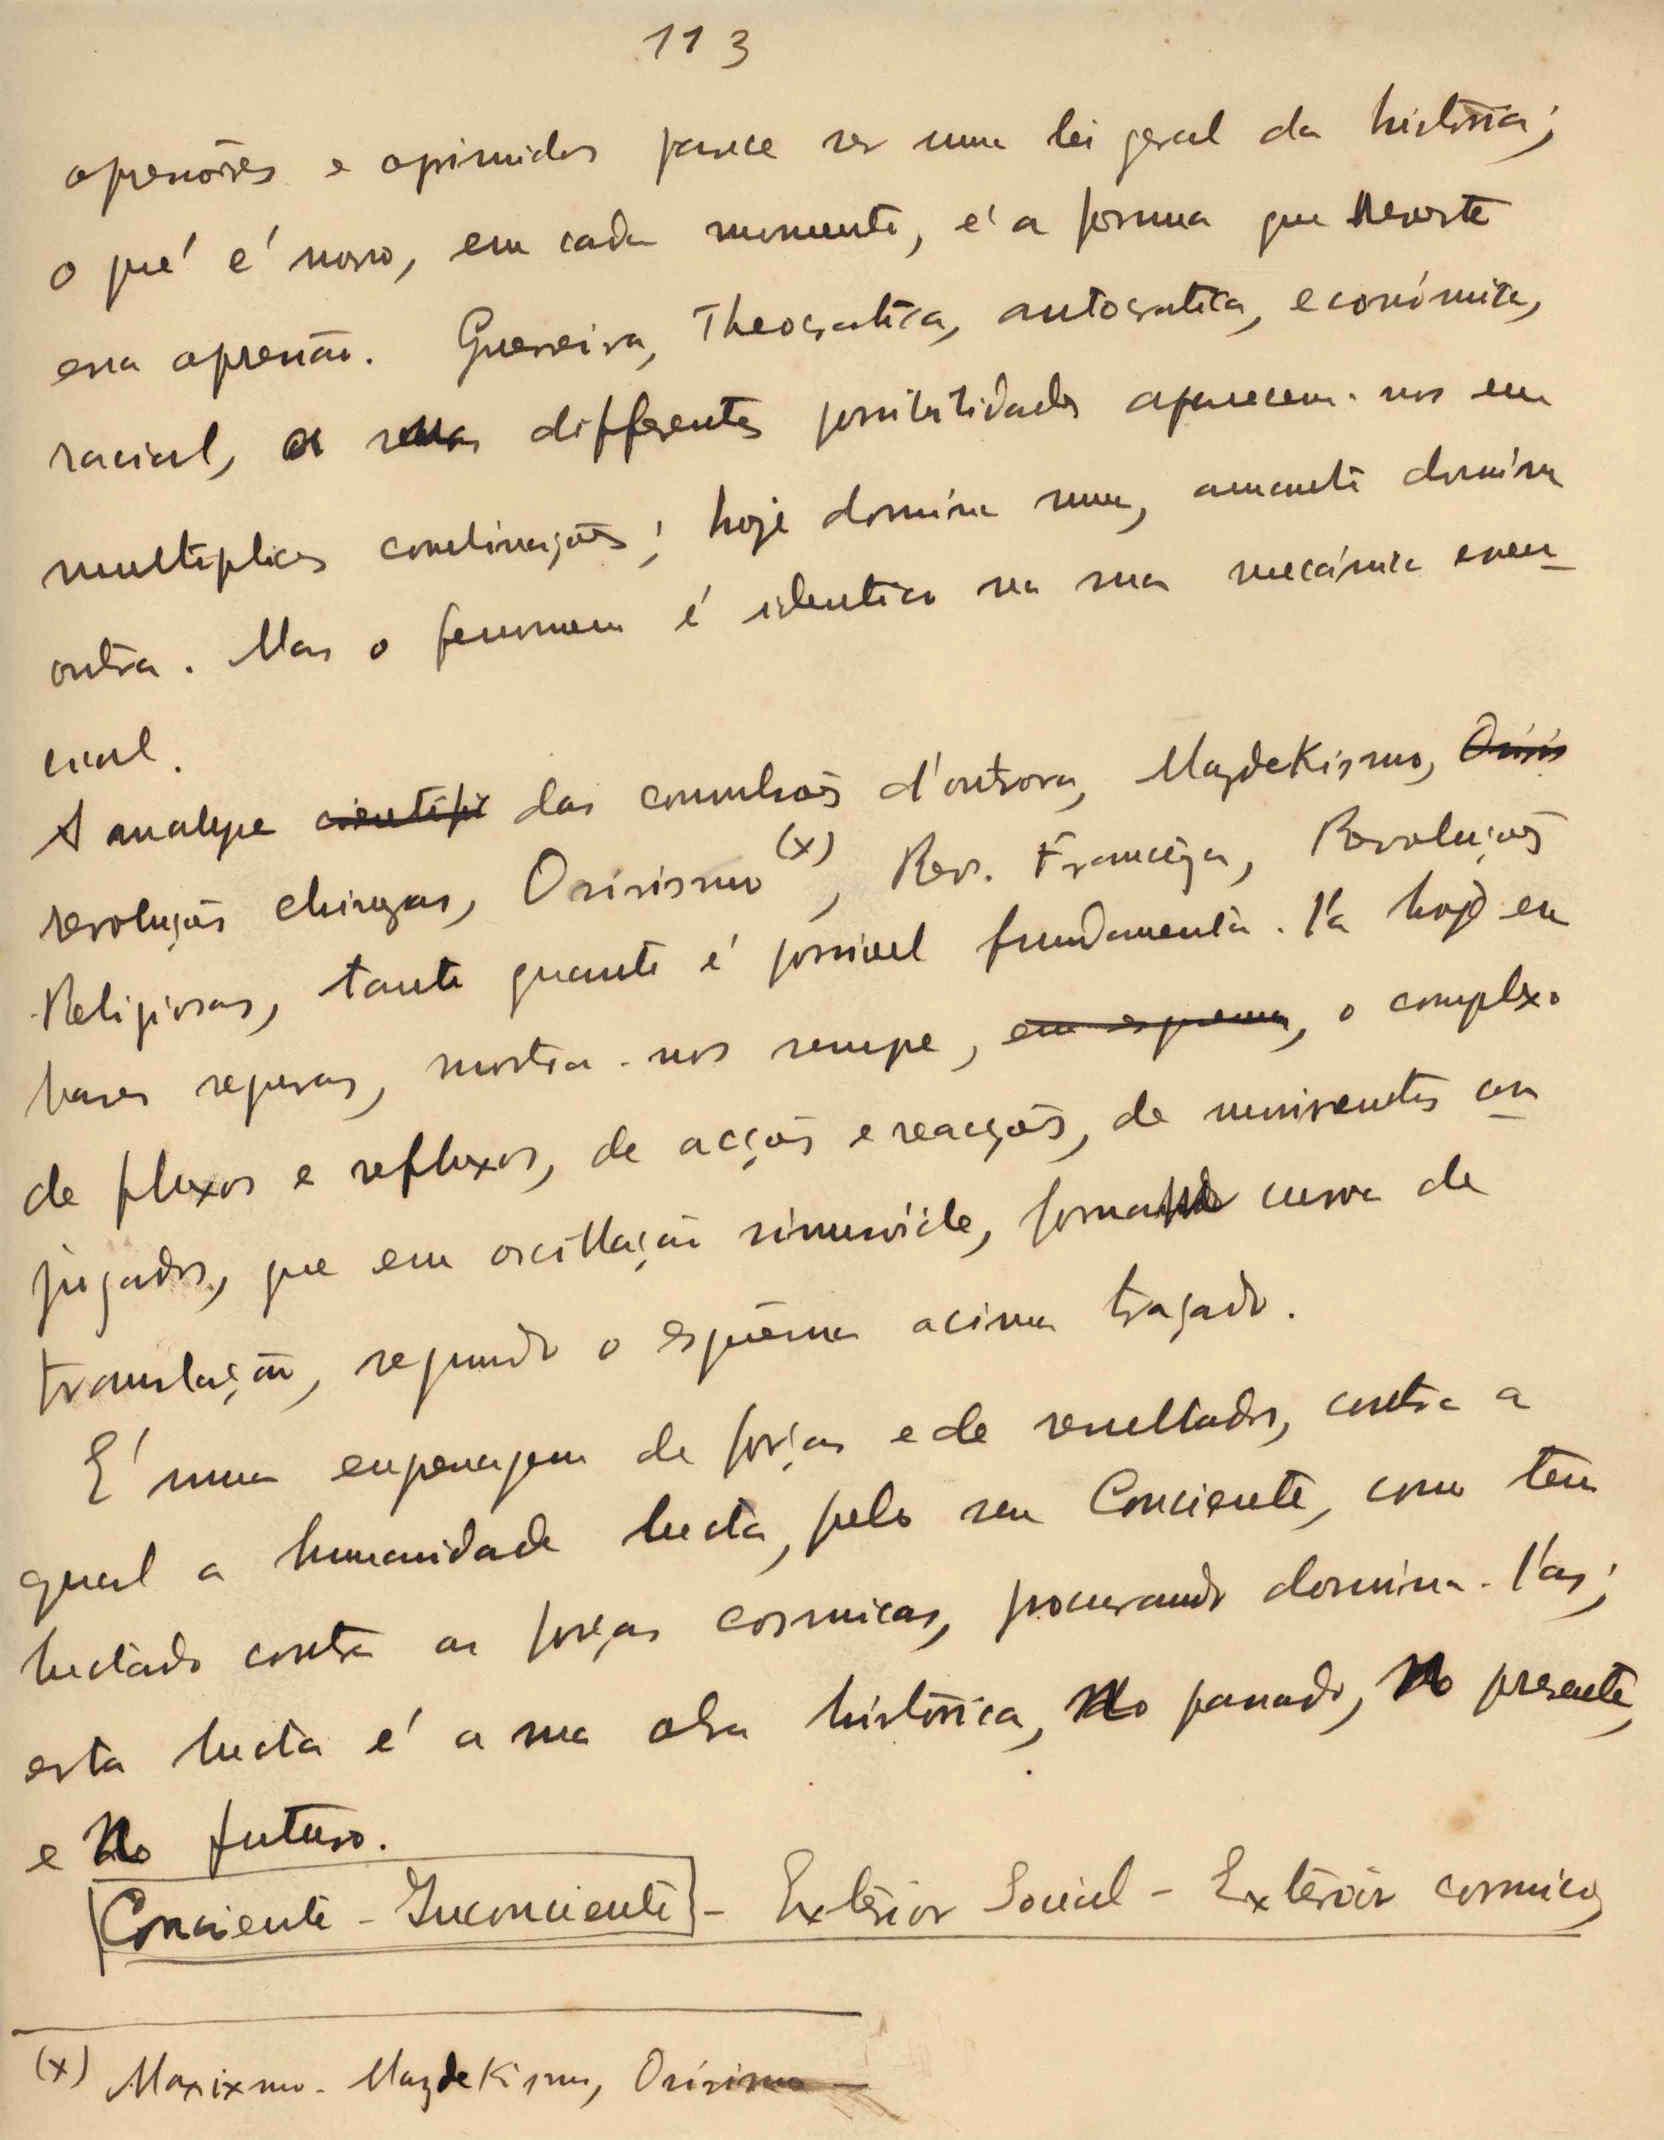 113
opressôres e oprimidos parece ser uma lei geral da história;
o que é novo, em cada momento, é a forma que reveste
essa opressão. Guerreira, Theocratica, autocratica, económica,
racial, as suas differentes possibilidades aparecem-nos em
multiplices combinações; hoje domina uma, amanhã domina
outra. Mas o fenomeno é identico na sua mecánica essen-
cial.
A analyse cientifi das convulsões d'outrora, Mazdekismo, Osiris
revoluções chinezas, Osirismo (x), Rev. Francêza, Revoluções
Religiosas, tanto quanto é possivel fundamentá-la hoje em
bases seguras, mostra-nos sempre, em esquema, o complexo
de fluxos e refluxos, de acções e reacções, de movimentos con
jugados, que em oscillação sinusóide, formando curva de
translação, segundo o esquêma acima traçado.
E' uma engenagem de forças e de resultados, contra a
qual a humanidade lucta, pelo seu Conciente, como tem
luctado contra as forças cosmicas, procurando domina-las;
esta lucta é a sua obra histórica, no passado, no presente,
e no futuro.
Conciente - Inconciente - Extérior Social - Extérior cosmico
(x) Marxismo - Mazdekismo, Osirismo -